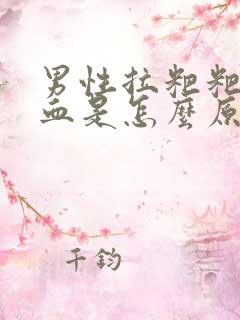 男性拉粑粑
血是怎麼原
千鈞